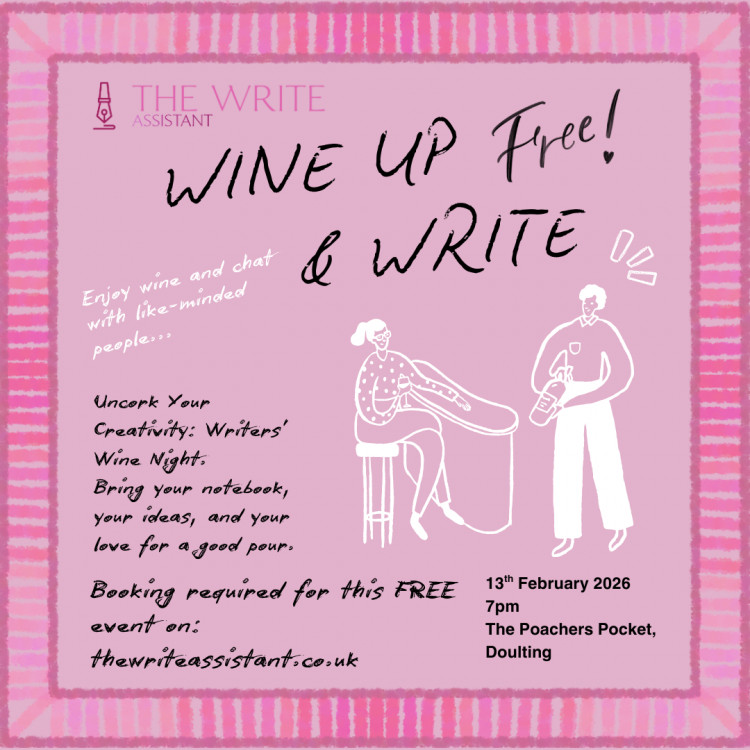 THE WRITE
ASSISTANT
WINE UP Free!
& WRITE
Enjoy wine and chat
with like-minded
people...
Uncork Your
Creativity: Writers'
Wine Night.
Bring your notebook,
your ideas, and your
love for a good pour.
Booking required for this FREE
event on:
thewriteassistant.co.uk
13th February 2026
7pm
The Poachers Pocket,
Doulting